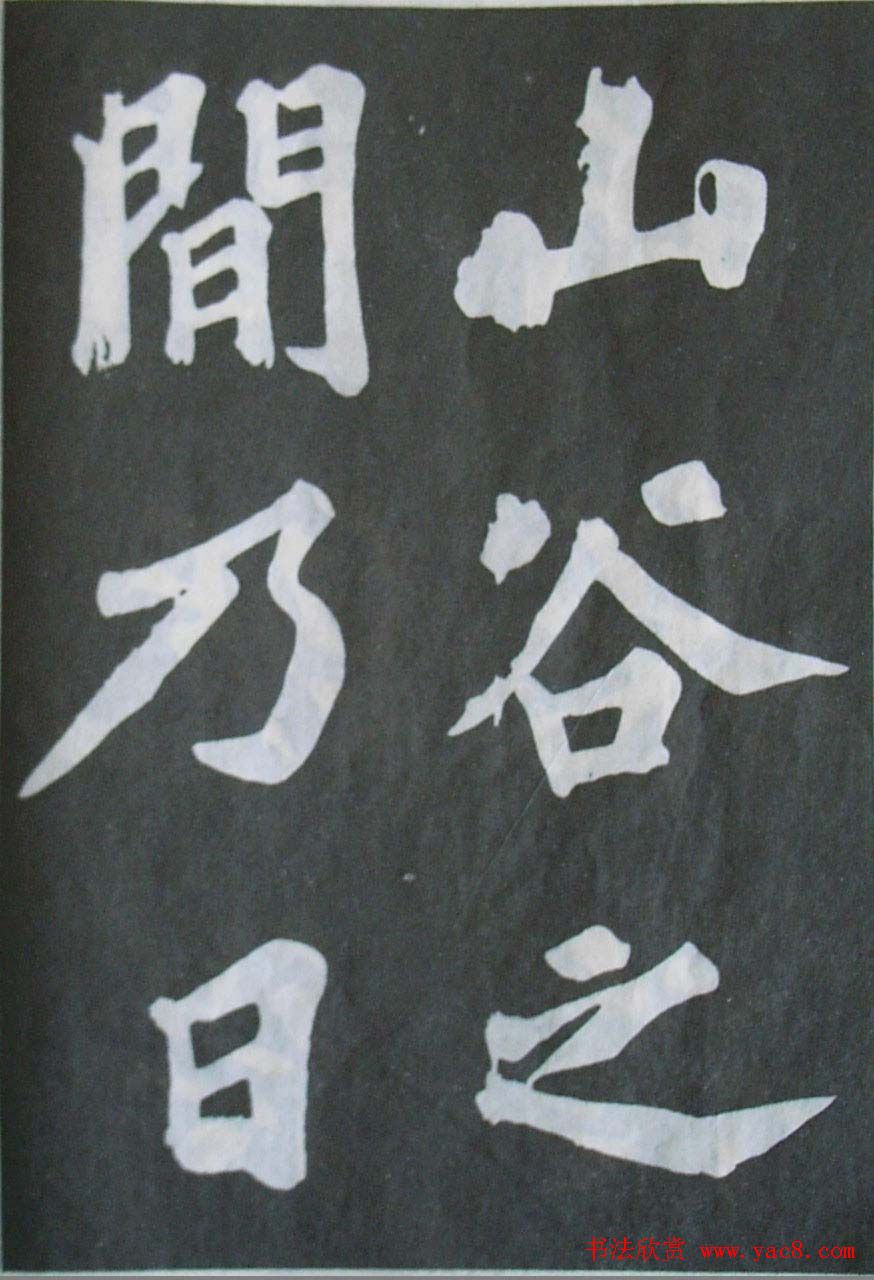 山谷之
間乃日
书法欣赏 www.yac8.com